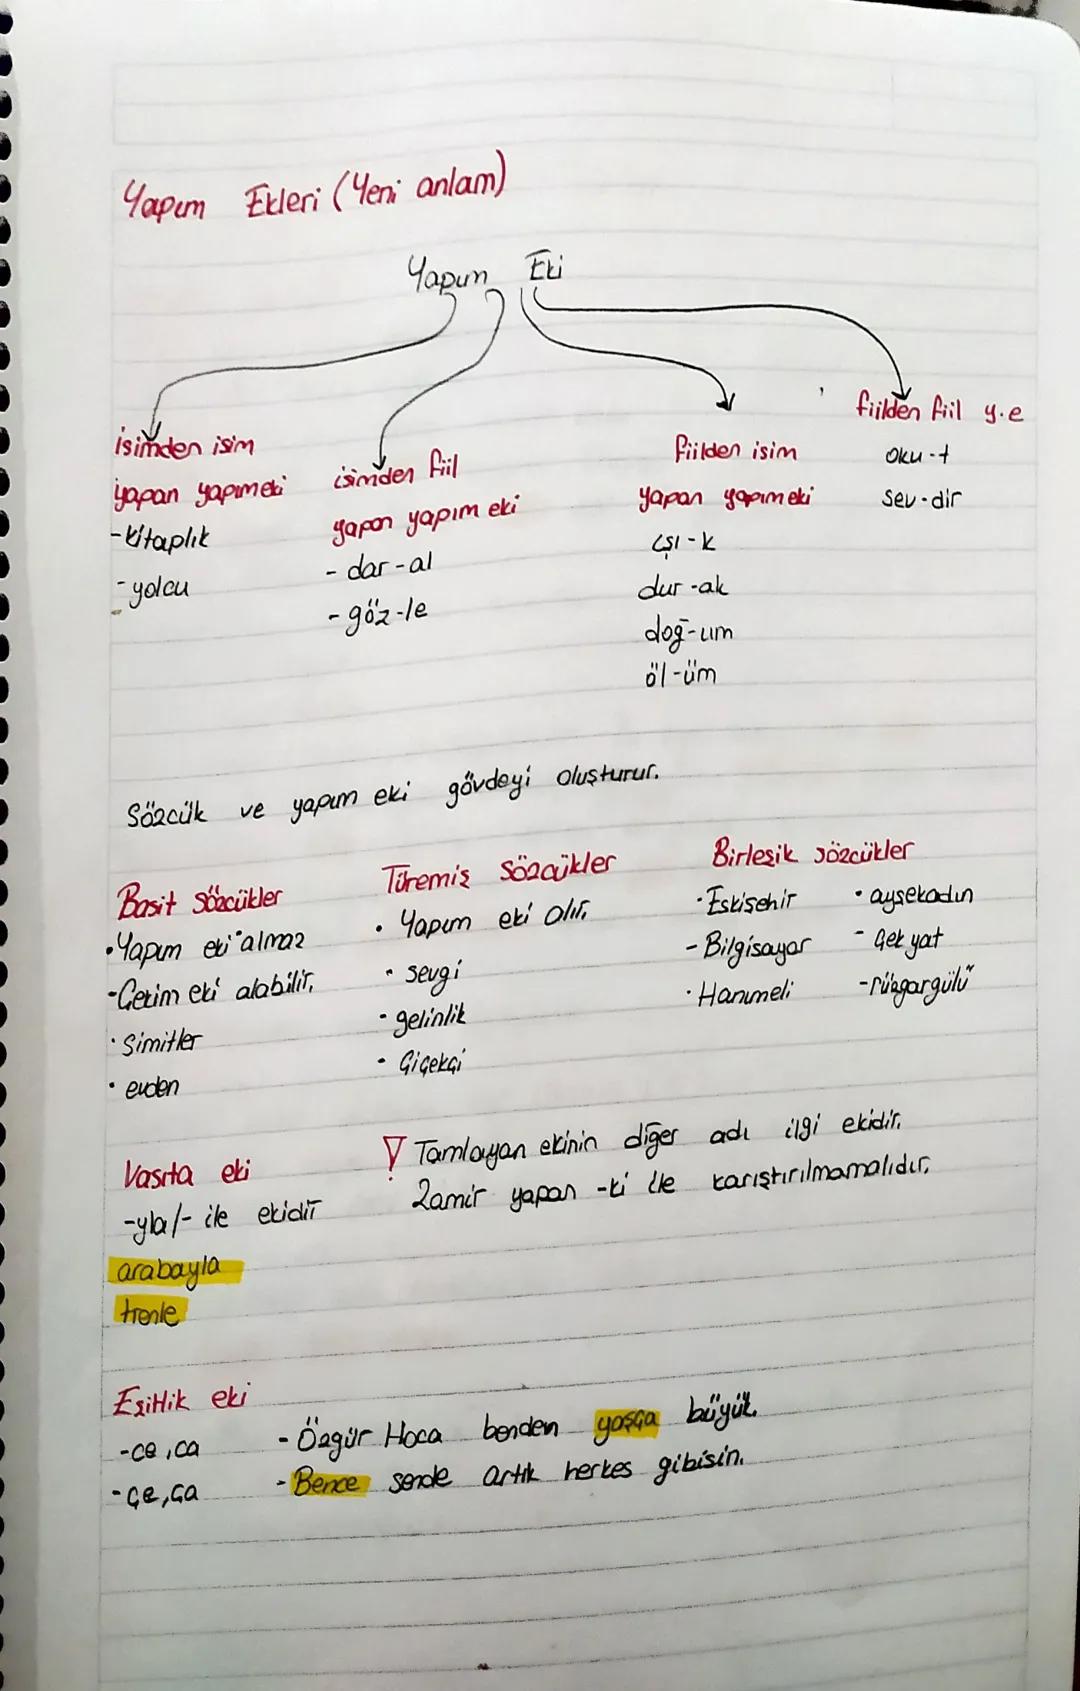 Yapım Ekleri (Yeni anlam)
Yapım Eki
isimden isim
yapan yapım eki
-kitaplık
-yolcu
isimden fiil
yapan yapım eki
- dar-al
- göz-le
fiilden isim
yapan yapım eki
ışı-k
dur-ak
doğ-um
öl-üm
fiilden fiil y.e
oku-t
sev-dir
Sözcük ve yapım eki gövdeyi oluşturur.
Basit sözcükler
•Yapım eki almaz
-Çekim eki alabilir.
•Simitler
•evden
Türemiş Sözcükler
• Yapım eki alır.
• sevgi
- gelinlik
• Çiçekçi
Birleşik sözcükler
•Eskişehir
- Bilgisayar
•Hanımeli
• ayşekadın
- Çek yat
-rüzgargülü
Vasıta eki
-yla/- ile ekidir
arabayla
trenle
! Tamlayan ekinin diğer adı ilgi ekidir.
Zamir yapan -ki ile karıştırılmamalıdır.
Eşitlik eki
-ce,ca
-çe,ça
- Özgür Hoca benden yaşça büyük.
- Bence sende artık herkes gibisin.